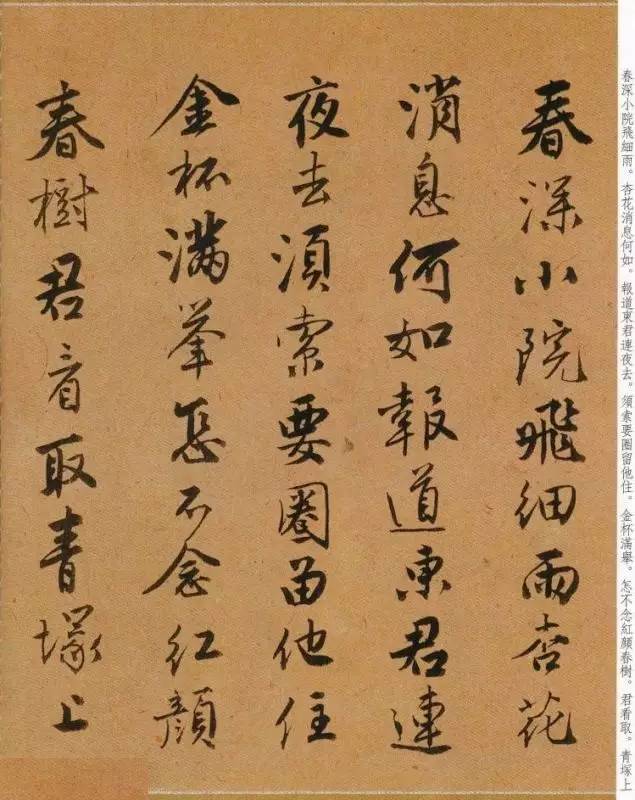 春深小院飛細雨。杏花消息何如。報道東君連夜去。須索要圈留他住。金杯滿舉。怎不念紅顏春樹。君看取。青塚上
春深小院飛細雨杏花
消息何如報道東君連
夜去須索要圈留他住
金杯滿舉怎不念紅顏
春樹君看取青塚上